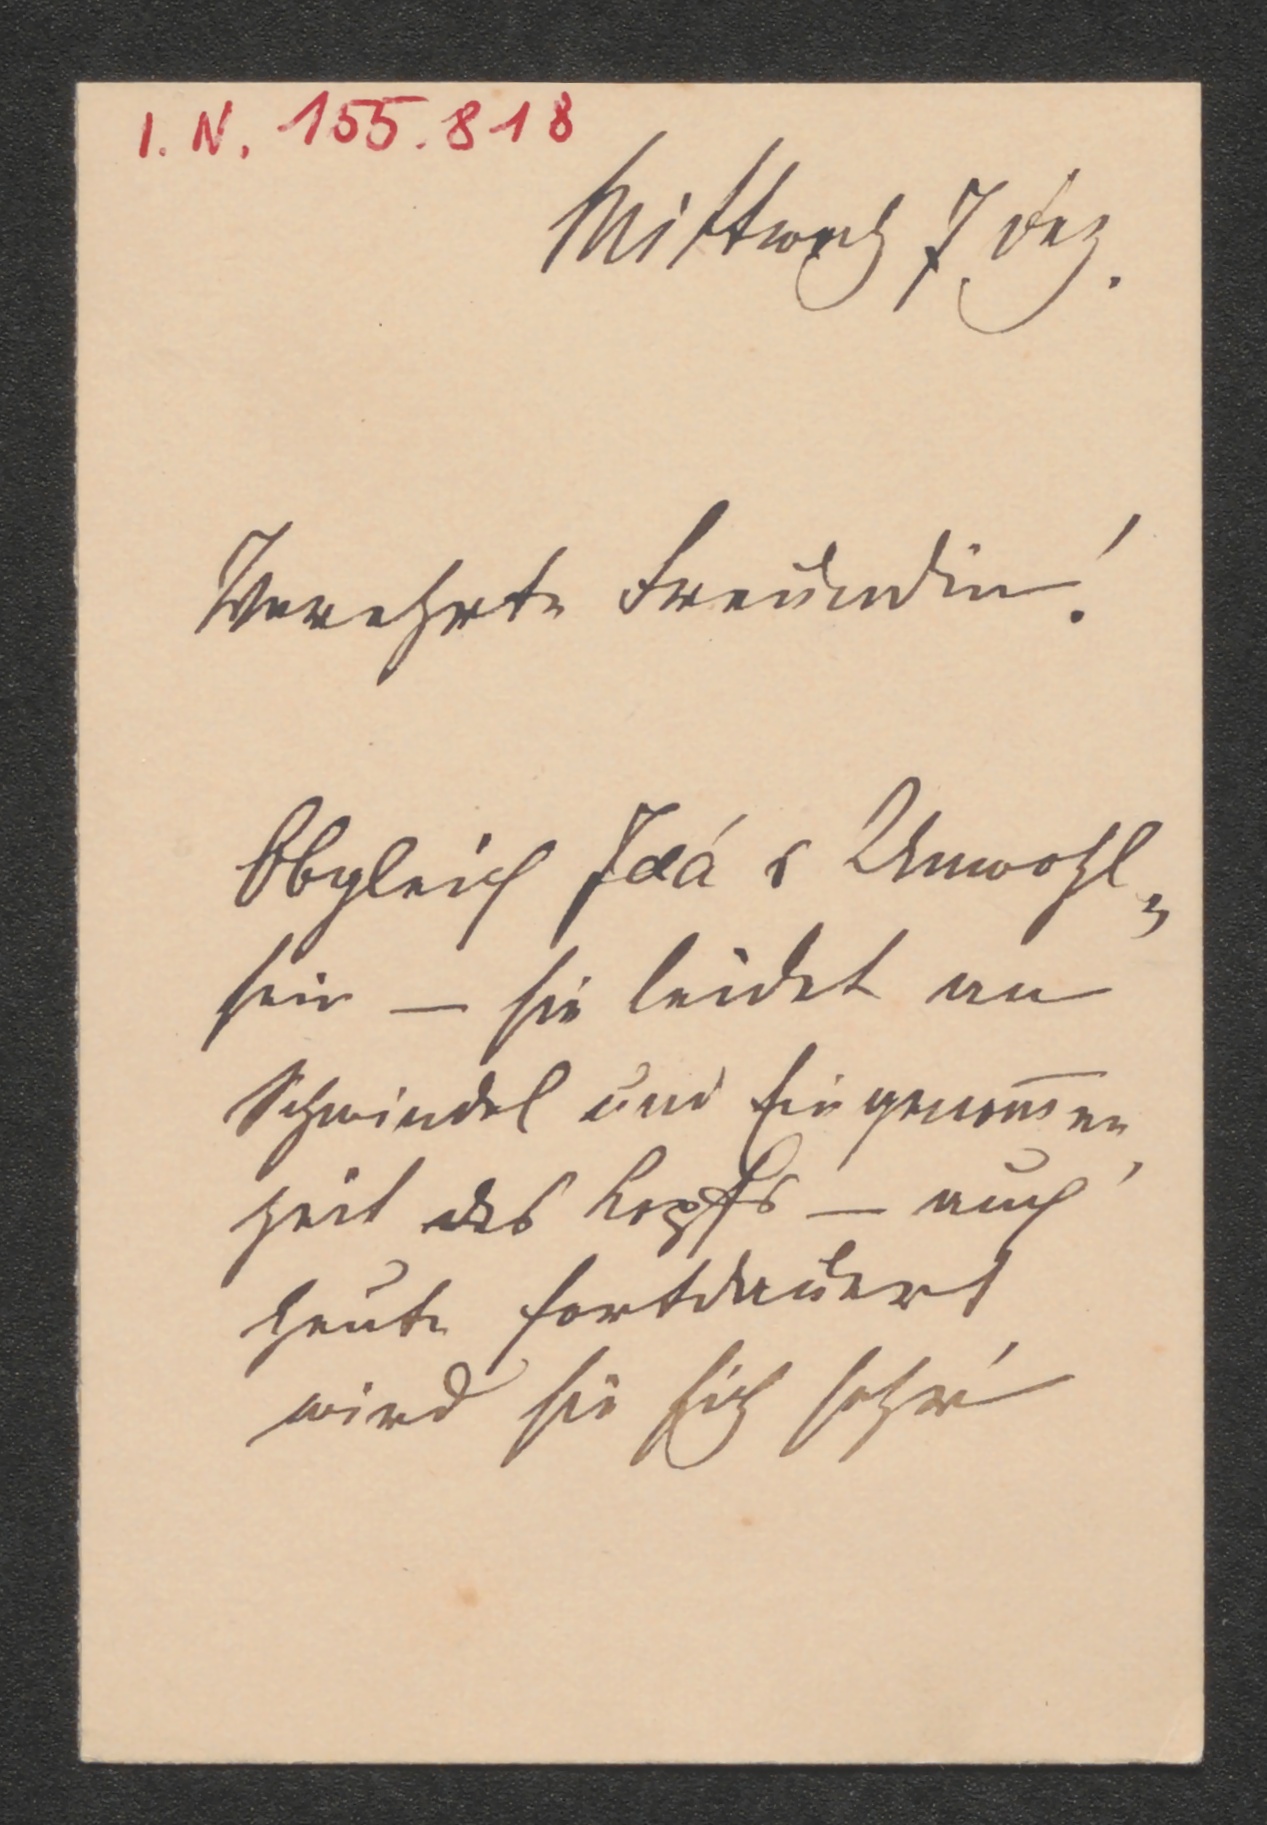 I. N. 155.818
Mittwoch 7 Dez.
Verehrte Freundin!
Obgleich Ida's Unwohl-
sein — sie leidet an
Schwindel und Eingenom̅en
heit des Kopfs — auch
heute fortdauert
wird sie sich sehr